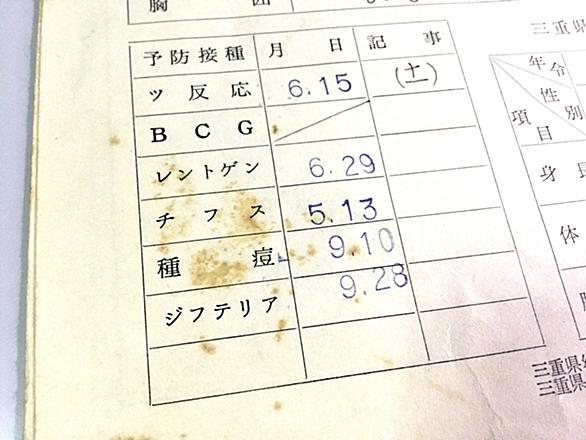 胸囲
予防接種 月日 記事
ツ反応 6.15 (±)
BCG
レントゲン 6.29
チフス 5.13
種痘 9.10
ジフテリア 9.28
三重県
年令
性別
項目
身長
体
三重県
三重県